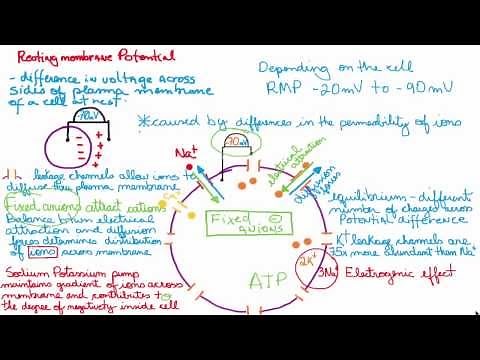 Resting membrane Potential
- difference in voltage across
sides of plasma membrane
of a cell at rest.
Depending on the cell
RMP -20mV to -90mV
*caused by differences in the permeability of ions
-70mV
-70mV
Na+
electrical attraction
diffusion forces
leakage channels allow ions to
diffuse thru plasma membrane
Fixed anions attract cations
Balance btwn electrical
attraction and diffusion
forces determines distribution
of ions across membrane
Sodium Potassium pump
maintains gradient of ions across
membrane and contributes to
the degree of negativity inside cell
Fixed -
anions
ATP
2K+
3Na+ Electrogenic effect
equilibrium - different
number of charges across
Potential difference
K+ leakage channels are
75x more abundant than Na+